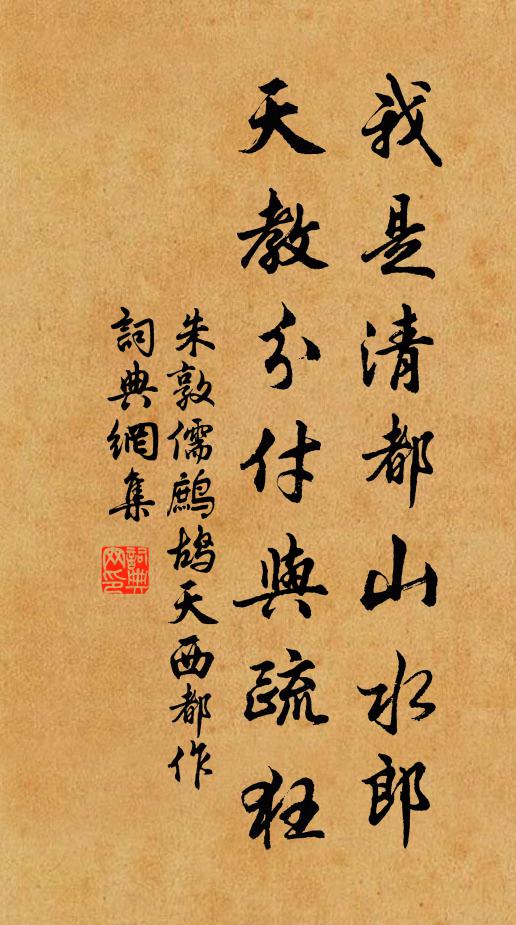 我是清都山水郎
天教分付與疏狂
朱敦儒鷓鴣天西都作
詞典網集
詞典網印